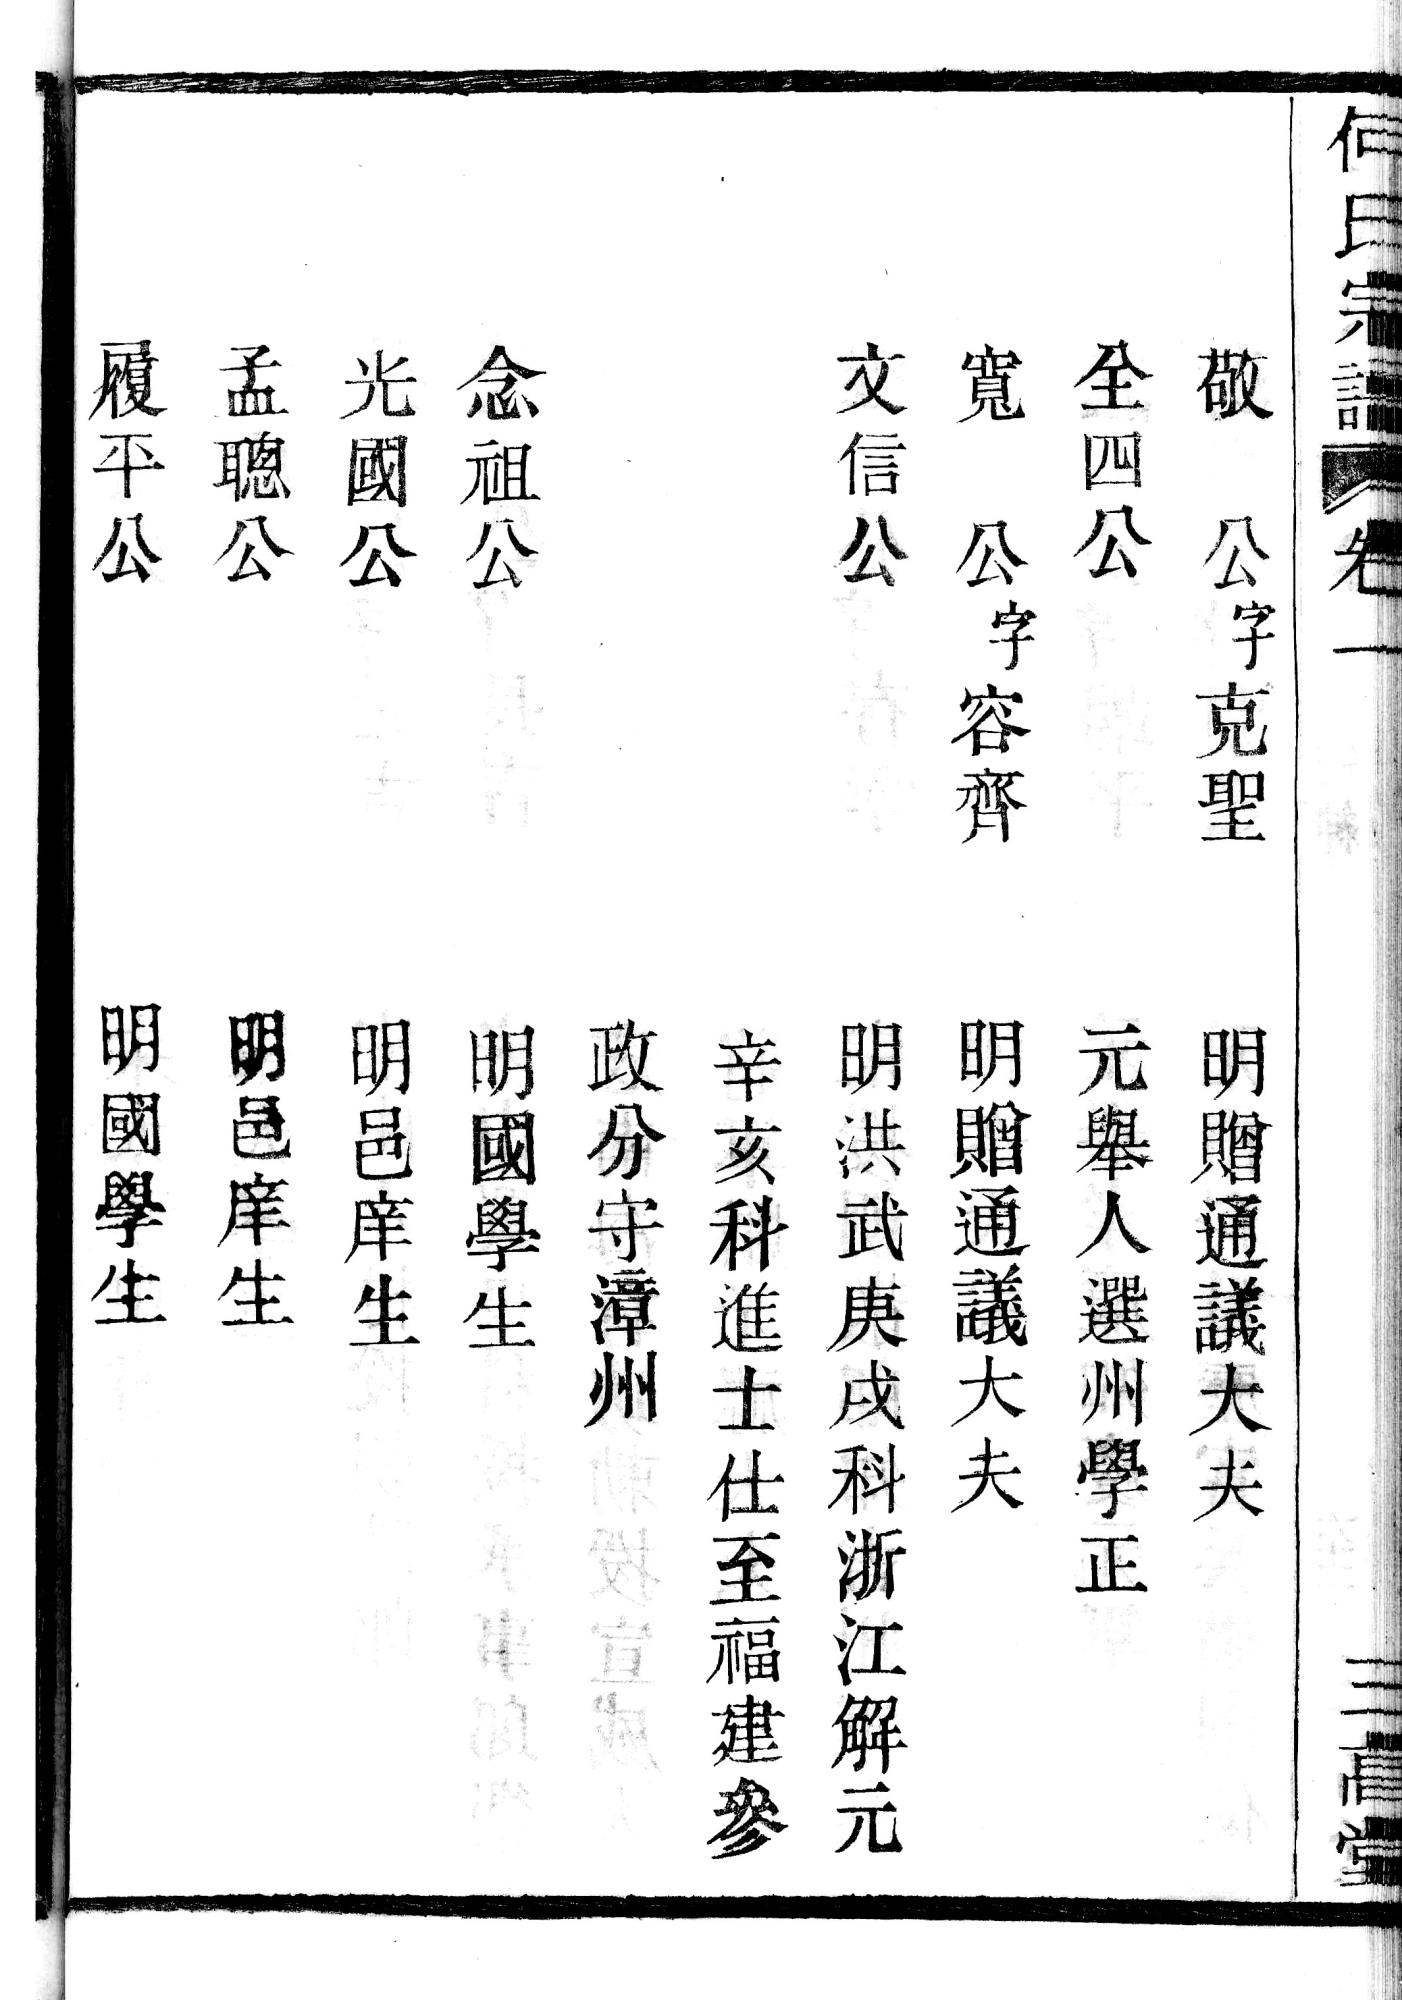 何氏宗譜 卷一 三高堂
敬 公字克聖 明贈通議大夫
全四公 元舉人選州學正
寬 公字容齊 明贈通議大夫
文信公 明洪武庚戌科浙江解元
辛亥科進士仕至福建參
政分守漳州
念祖公 明國學生
光國公 明邑庠生
孟聰公 明邑庠生
履平公 明國學生